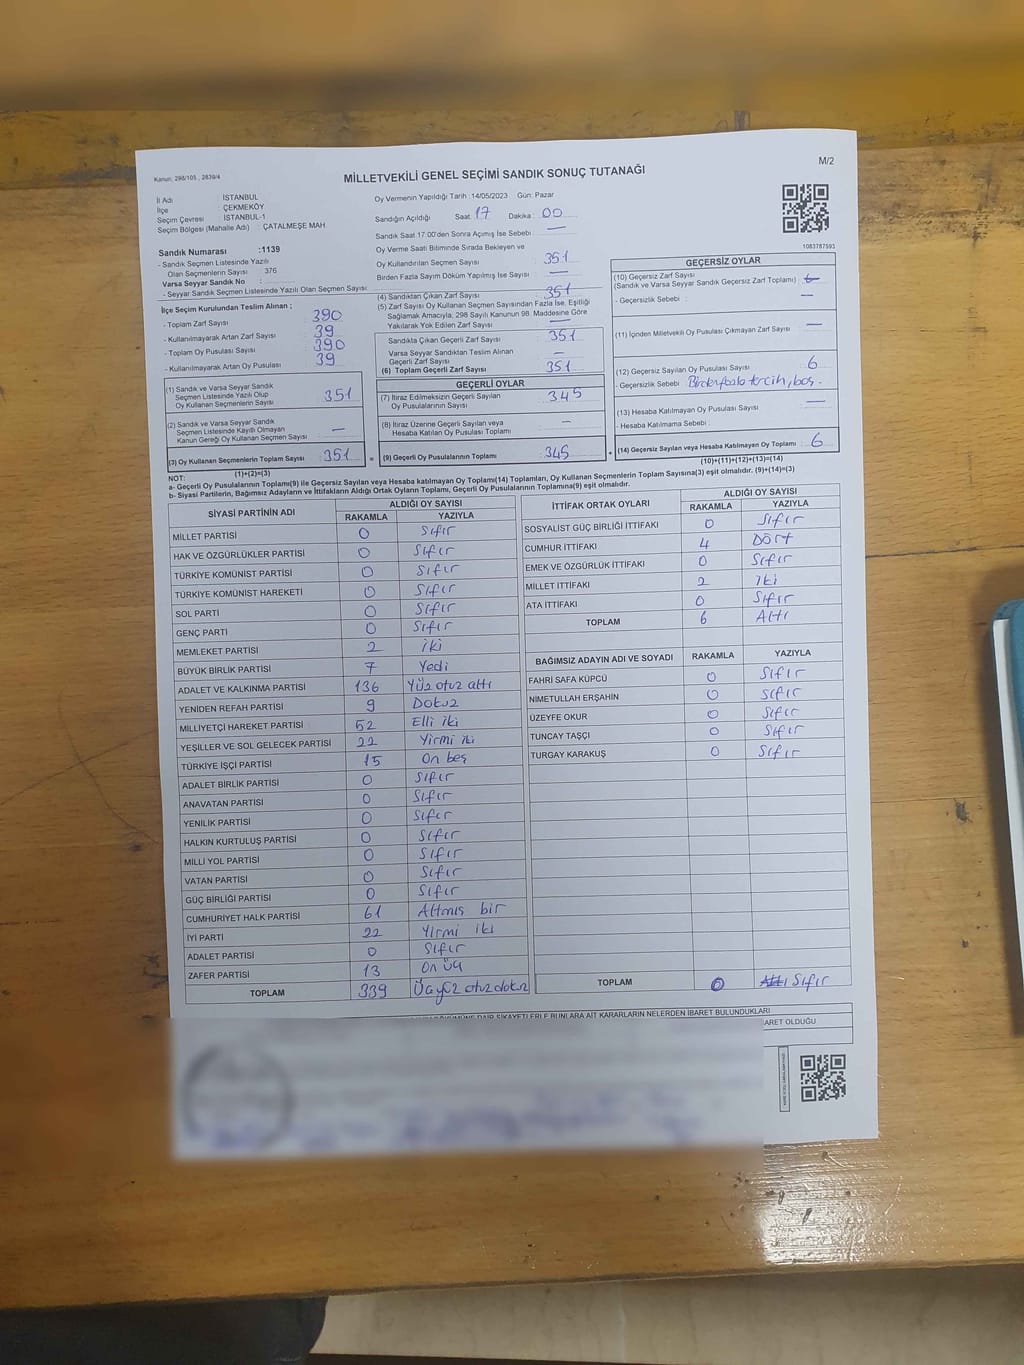 Kanun: 298/105 , 2839/4
M/2
MİLLETVEKİLİ GENEL SEÇİMİ SANDIK SONUÇ TUTANAĞI
İl Adı : İSTANBUL
İlçe : ÇEKMEKÖY
Seçim Çevresi : İSTANBUL-1
Seçim Bölgesi (Mahalle Adı) : ÇATALMEŞE MAH
Sandık Numarası :1139
- Sandık Seçmen Listesinde Yazılı
Olan Seçmenlerin Sayısı : 376
Varsa Seyyar Sandık No :
- Seyyar Sandık Seçmen Listesinde Yazılı Olan Seçmen Sayısı
İlçe Seçim Kurulundan Teslim Alınan ;
- Toplam Zarf Sayısı 390
- Kullanılmayarak Artan Zarf Sayısı 39
- Toplam Oy Pusulası Sayısı 390
- Kullanılmayarak Artan Oy Pusulası 39
(1) Sandık ve Varsa Seyyar Sandık
Seçmen Listesinde Yazılı Olup
Oy Kullanan Seçmenlerin Sayısı 351
(2) Sandık ve Varsa Seyyar Sandık
Seçmen Listesinde Kayıtlı Olmayan
Kanun Gereği Oy Kullanan Seçmen Sayısı —
(3) Oy Kullanan Seçmenlerin Toplam Sayısı : 351
(1)+(2)=(3)
Oy Vermenin Yapıldığı Tarih :14/05/2023 Gün: Pazar
Sandığın Açıldığı Saat: 17 Dakika : 00
Sandık Saat 17.00'den Sonra Açımış İse Sebebi : —
Oy Verme Saati Bitiminde Sırada Bekleyen ve
Oy Kullandırılan Seçmen Sayısı 351
Birden Fazla Sayım Döküm Yapılmış İse Sayısı : —
(4) Sandıktan Çıkan Zarf Sayısı 351
(5) Zarf Sayısı Oy Kullanan Seçmen Sayısından Fazla İse, Eşitliği
Sağlamak Amacıyla, 298 Sayılı Kanunun 98. Maddesine Göre
Yakılarak Yok Edilen Zarf Sayısı —
Sandıkta Çıkan Geçerli Zarf Sayısı 351
Varsa Seyyar Sandıktan Teslim Alınan
Geçerli Zarf Sayısı —
(6) Toplam Geçerli Zarf Sayısı 351
GEÇERLİ OYLAR
(7) İtiraz Edilmeksizin Geçerli Sayılan
Oy Pusulalarının Sayısı 345
(8) İtiraz Üzerine Geçerli Sayılan veya
Hesaba Katılan Oy Pusulası Toplamı —
(9) Geçerli Oy Pusulalarının Toplamı : 345
1083787593
GEÇERSİZ OYLAR
(10) Geçersiz Zarf Sayısı
(Sandık ve Varsa Seyyar Sandık Geçersiz Zarf Toplamı) :
- Geçersizlik Sebebi : —
(11) İçinden Milletvekili Oy Pusulası Çıkmayan Zarf Sayısı —
(12) Geçersiz Sayılan Oy Pusulası Sayısı : 6
- Geçersizlik Sebebi Birden fazla tercih, boş.
(13) Hesaba Katılmayan Oy Pusulası Sayısı —
- Hesaba Katılmama Sebebi :
(14) Geçersiz Sayılan veya Hesaba Katılmayan Oy Toplamı : 6
(10)+(11)+(12)+(13)=(14)
NOT:
a- Geçerli Oy Pusulalarının Toplamı(9) ile Geçersiz Sayılan veya Hesaba katılmayan Oy Toplamı(14) Toplamları, Oy Kullanan Seçmenlerin Toplam Sayısına(3) eşit olmalıdır. (9)+(14)=(3)
b- Siyasi Partilerin, Bağımsız Adayların ve İttifakların Aldığı Ortak Oyların Toplamı, Geçerli Oy Pusulalarının Toplamına(9) eşit olmalıdır.
SİYASİ PARTİNİN ADI ALDIĞI OY SAYISI
RAKAMLA YAZIYLA
MİLLET PARTİSİ 0 Sıfır
HAK VE ÖZGÜRLÜKLER PARTİSİ 0 Sıfır
TÜRKİYE KOMÜNİST PARTİSİ 0 Sıfır
TÜRKİYE KOMÜNİST HAREKETİ 0 Sıfır
SOL PARTİ 0 Sıfır
GENÇ PARTİ 0 Sıfır
MEMLEKET PARTİSİ 2 iki
BÜYÜK BİRLİK PARTİSİ 7 Yedi
ADALET VE KALKINMA PARTİSİ 136 Yüz otuz altı
YENİDEN REFAH PARTİSİ 9 Dokuz
MİLLİYETÇİ HAREKET PARTİSİ 52 Elli iki
YEŞİLLER VE SOL GELECEK PARTİSİ 22 Yirmi iki
TÜRKİYE İŞÇİ PARTİSİ 15 On beş
ADALET BİRLİK PARTİSİ 0 Sıfır
ANAVATAN PARTİSİ 0 Sıfır
YENİLİK PARTİSİ 0 Sıfır
HALKIN KURTULUŞ PARTİSİ 0 Sıfır
MİLLİ YOL PARTİSİ 0 Sıfır
VATAN PARTİSİ 0 Sıfır
GÜÇ BİRLİĞİ PARTİSİ 0 Sıfır
CUMHURİYET HALK PARTİSİ 61 Altmış bir
İYİ PARTİ 22 Yirmi iki
ADALET PARTİSİ 0 Sıfır
ZAFER PARTİSİ 13 On üç
TOPLAM 339 Üçyüz otuz dokuz
İTTİFAK ORTAK OYLARI ALDIĞI OY SAYISI
RAKAMLA YAZIYLA
SOSYALİST GÜÇ BİRLİĞİ İTTİFAKI 0 Sıfır
CUMHUR İTTİFAKI 4 Dört
EMEK VE ÖZGÜRLÜK İTTİFAKI 0 Sıfır
MİLLET İTTİFAKI 2 iki
ATA İTTİFAKI 0 Sıfır
TOPLAM 6 Altı
BAĞIMSIZ ADAYIN ADI VE SOYADI RAKAMLA YAZIYLA
FAHRİ SAFA KÜPCÜ 0 Sıfır
NİMETULLAH ERŞAHİN 0 Sıfır
ÜZEYFE OKUR 0 Sıfır
TUNCAY TAŞÇI 0 Sıfır
TURGAY KARAKUŞ 0 Sıfır
TOPLAM 0 Altı Sıfır
DAİR ŞİKAYETLERLE BUNLARA AİT KARARLARIN NELERDEN İBARET BULUNDUKLARI
ARET OLDUĞU